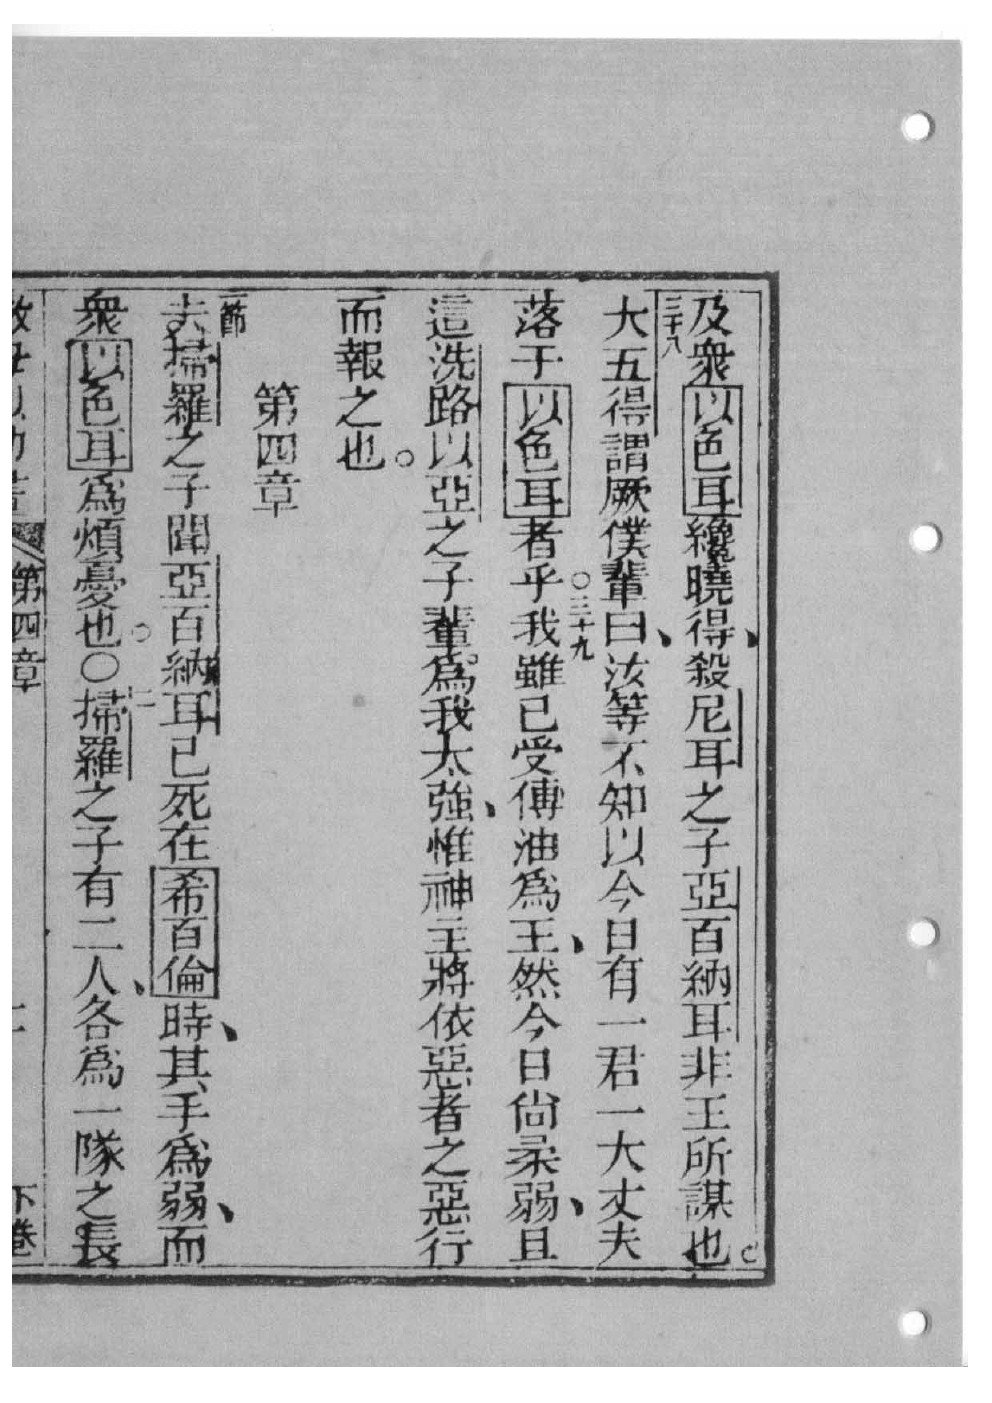 及衆以色耳纔曉得、殺尼耳之子亞百納耳非王所謀也。
三十八
大五得謂厥僕輩曰、汝等不知以今日有一君一大丈夫
落于以色耳者乎○三十九我雖已受傅油爲王、然今日尚柔弱、且
這洗路以亞之子輩爲我太強、惟神主將依惡者之惡行
而報之也。
第四章
一節
夫掃羅之子聞亞百納耳已死在希百倫時、其手爲弱、而
衆以色耳爲煩憂也○二掃羅之子有二人、各爲一隊之長
第四章
下卷